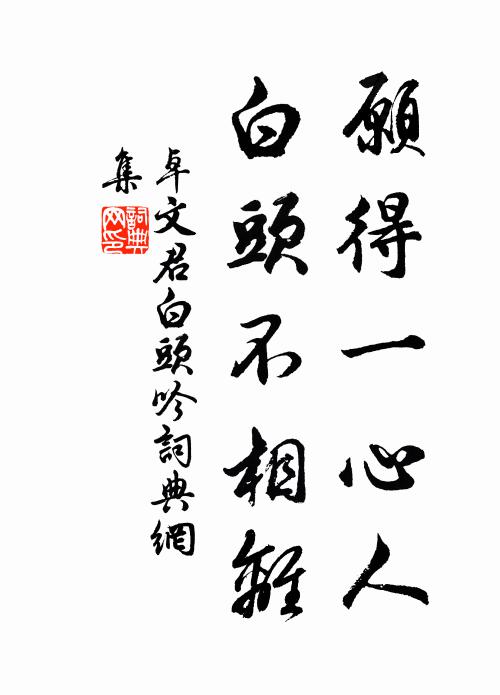 願得一心人
白頭不相離
卓文君白頭吟詞典網
集
詞典網印